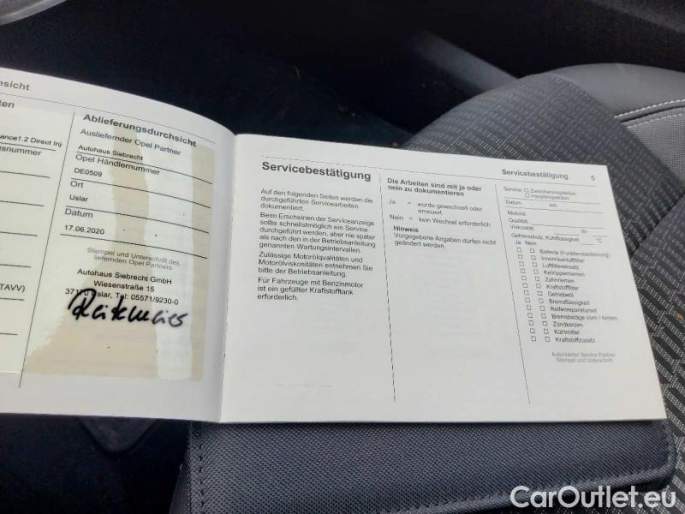 sicht
ten
ance1.2 Direct Inj
snummer
TAVV)
Ablieferungsdurchsicht
Ausliefernder Opel Partner
Autohaus Siebrecht
Opel Händlernummer
DE0509
Ort
Uslar
Datum
17.06.2020
Stempel und Unterschrift des
liefernden Opel Partners
Autohaus Siebrecht GmbH
Wiesenstraße 15
371 Uslar, Tel: 05571/9230-0
Servicebestätigung
Auf den folgenden Seiten werden die
durchgeführten Servicearbeiten
dokumentiert.
Beim Erscheinen der Serviceanzeige
sollte schnellstmöglich ein Service
durchgeführt werden, aber nie später
als nach den in der Betriebsanleitung
genannten Wartungsintervallen.
Zulässige Motorölqualitäten und
Motorölviskositäten entnehmen Sie
bitte der Betriebsanleitung.
Für Fahrzeuge mit Benzinmotor
ist ein gefüllter Kraftstofftank
erforderlich.
Die Arbeiten sind mit ja oder
nein zu dokumentieren:
Ja = wurde gewechselt oder
erneuert.
Nein = kein Wechsel erforderlich.
Hinweis
Vorgegebene Angaben dürfen nicht
geändert werden.
Servicebestätigung 5
Service:
Datum km
Motoröl:
Qualität
Viskosität
Gefrierschutz, Kühlflüssigkeit °C
Ja Nein
Batterie
Innenraumluftfilter
Luftfiltereinsatz
Keilrippenriemen
Zahnriemen
Kraftstofffilter
Getriebeöl
Bremsflüssigkeit
Reifenreparaturset
Bremsbeläge vorn / hinten
Zündkerzen
Kühlmittel
Kraftstoffzusatz
Autorisierter Service Partner
Stempel und Unterschrift
CarOutlet.eu